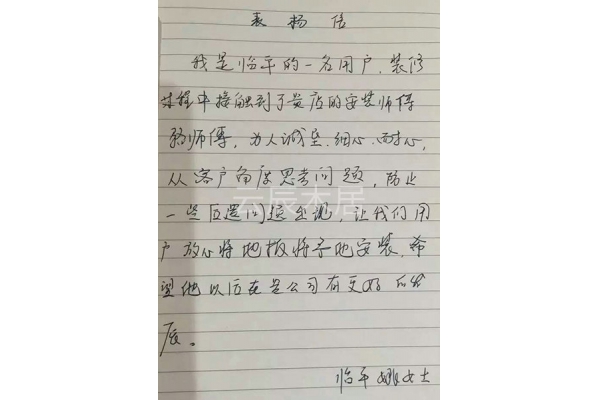 表扬信
我是临平的一名用户、装修
过程中接触到了贵店的安装师傅
师傅，为人诚坚、细心、耐心，
从客户角度思考问题，防止
一些后遗问题出现，让我们用
户放心将地板将予他安装、希
望他以后在是公司有更好的发
展。
临平 姚女士
云辰木居